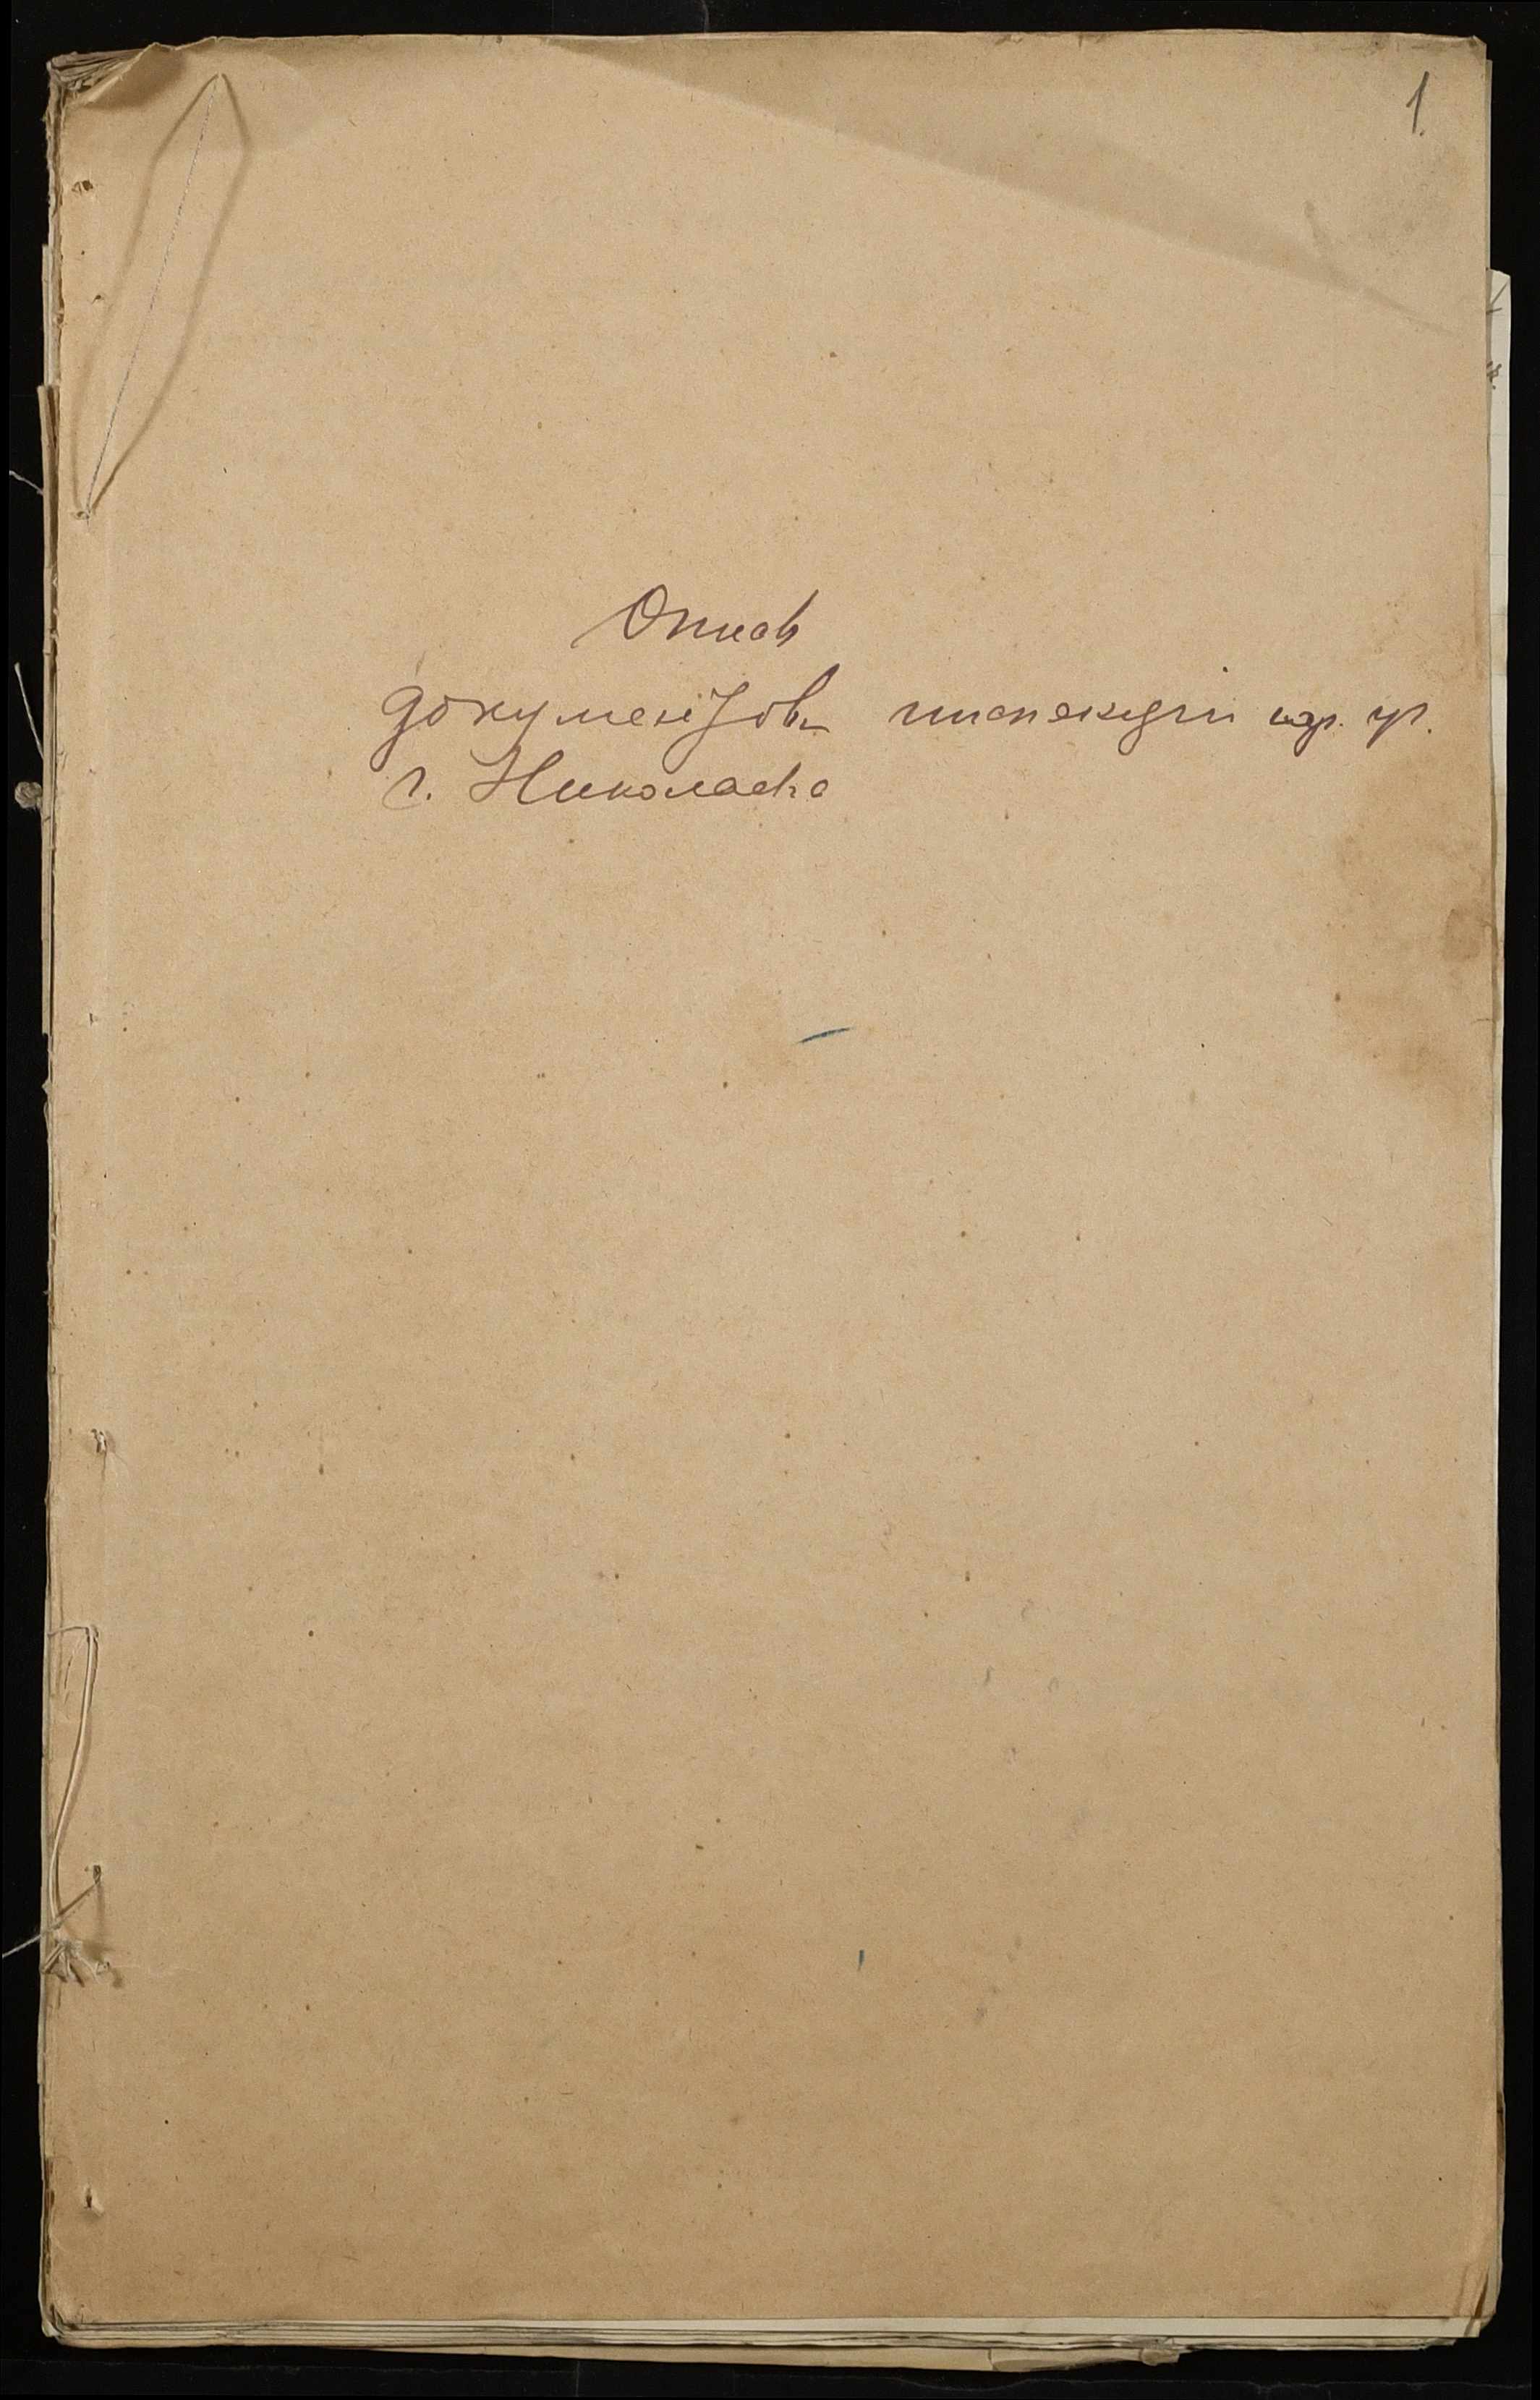 1.
Опись
документовъ инспекціи нар. уч.
г. Николаева